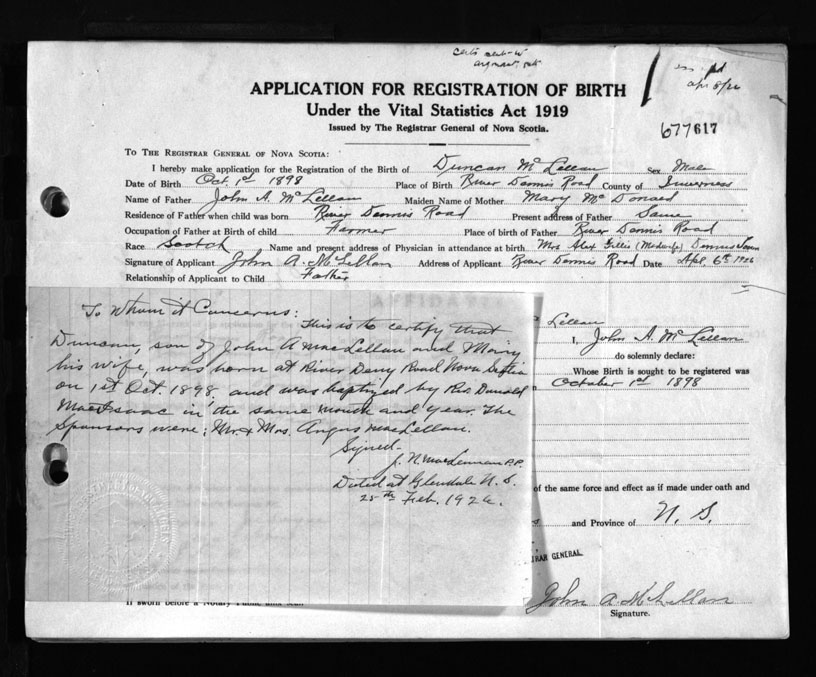 APPLICATION FOR REGISTRATION OF BIRTH
Under the Vital Statistics Act 1919
Issued by The Registrar General of Nova Scotia.
apr 8/26
677617
To The Registrar General of Nova Scotia:
I hereby make application for the Registration of the Birth of Duncan Mc Lellan Sex Male
Date of Birth Oct. 1st 1898 Place of Birth River Dennis Road County of Inverness
Name of Father John A. Mc Lellan Maiden Name of Mother Mary Mc Donald
Residence of Father when child was born River Dennis Road Present address of Father Same
Occupation of Father at Birth of child Farmer Place of birth of Father River Dennis Road
Race Scotch Name and present address of Physician in attendance at birth Mrs Alex Gillis (Midwife) Dennis
Signature of Applicant John A. McLellan Address of Applicant River Dennis Road Date Apl, 6th 1926
Relationship of Applicant to Child Father
To Whom it Concerns:
This is to certify that
Duncan, son of John A MacLellan and Mary
his wife, was born at River Deny Road Nova Scotia
on 1st Oct. 1898 and was baptized by Rev. Donald
MacIsaac in the same month and year. The
Sponsors were: Mr. & Mrs. Angus MacLellan.
Signed-
J. N. MacLennan P.P.
Dated at Glendale N. S.
25th Feb. 1926.
Lellan
I, John A. Mc Lellan
do solemnly declare:
Whose Birth is sought to be registered was
October 1st 1898
of the same force and effect as if made under oath and
and Province of N. S.
RAR GENERAL.
If sworn before a Notary Public affix seal
John A. McLellan
Signature.